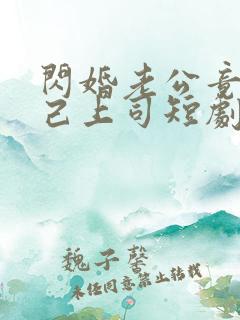 閃婚老公竟
己上司短劇
魏子馨
未經同意禁止轉載